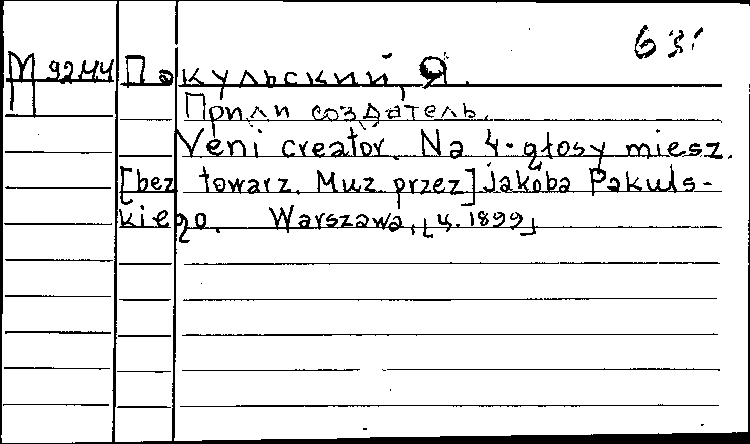 63
М 92.44 Пакульский, Я.
П
Прили создатель.
Veni creator. Na 4-głosy miesz.
[bez towarz. Muz. przez] Jakóba Pakuls-
kiego. Warszawa, [ц. 1899]